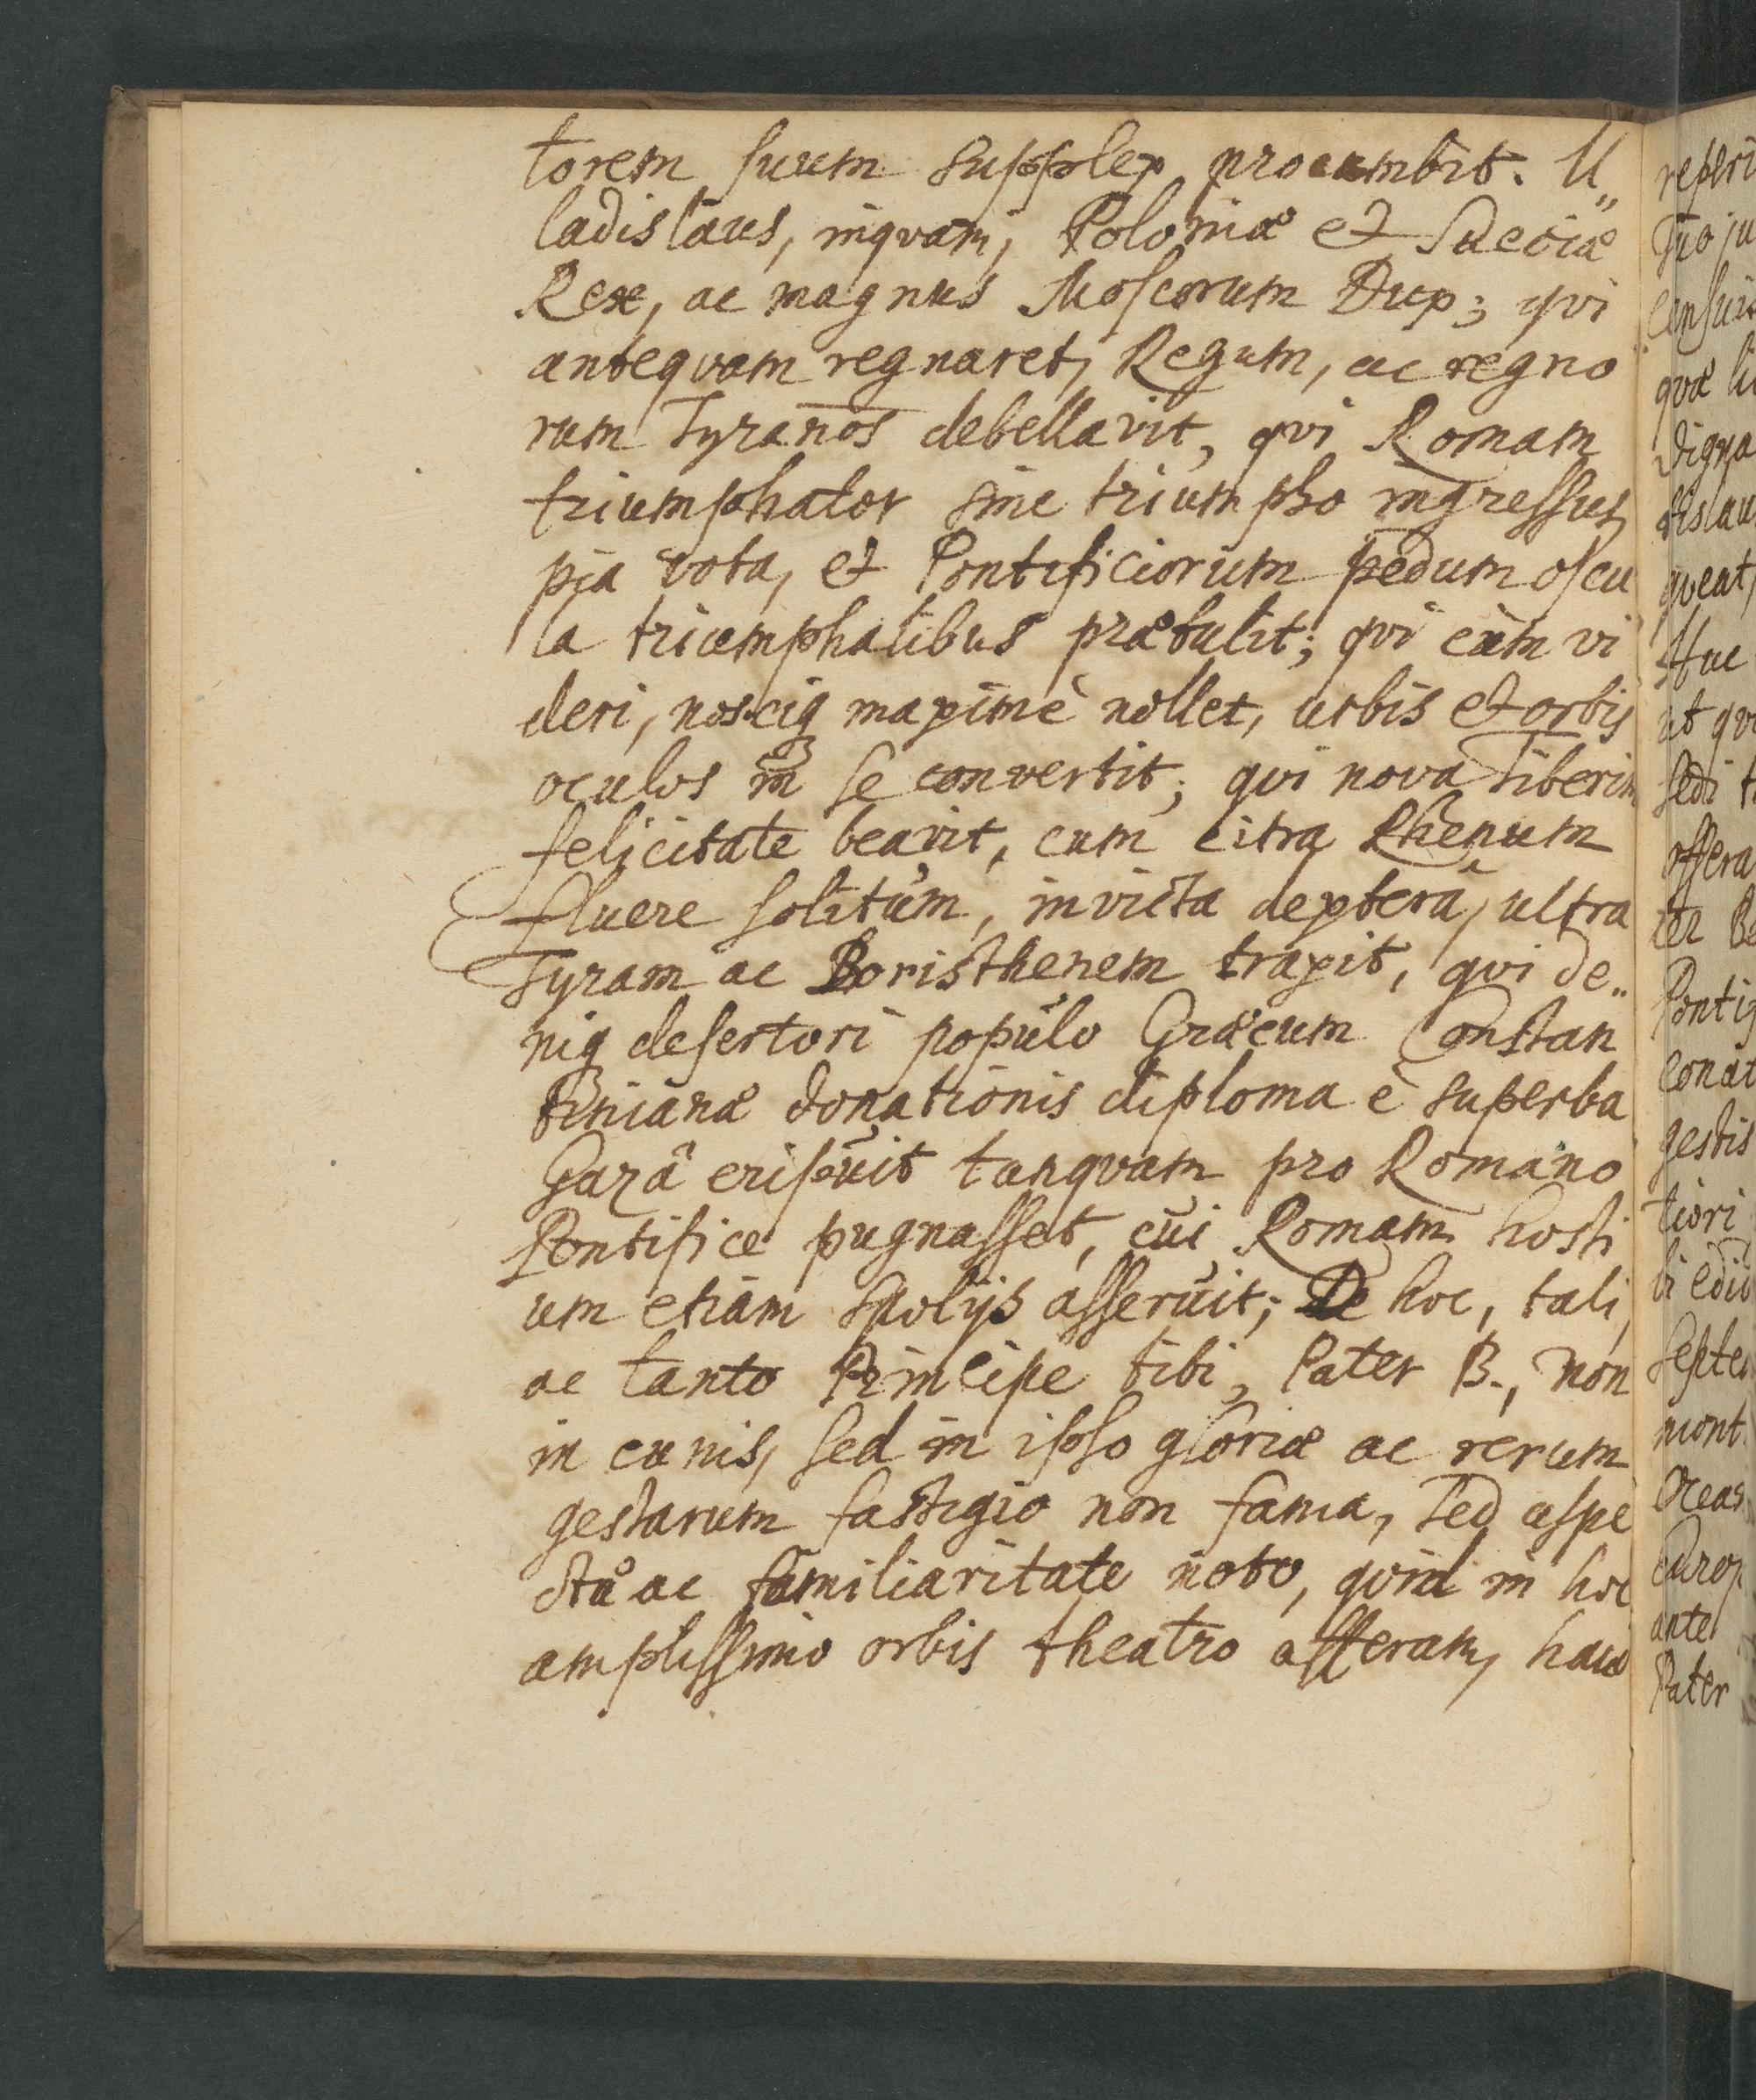 torem suum supplex procumbit. U„
ladislaus, inqvam, Poloniæ et Sueciæ
Rex, ac magnus Moscorum Dux; qvi
anteqvam regnaret, Regum, ac regno
rum Tyrānos debellavit, qvi Romam
triumphator sine triumpho ingressus
pia vota, et Pontificiorum pedum oscu
la triumphalibus prætulit; qvi cùm vi
deri, noscíq maximè nollet, urbis et orbis
oculos in se convertit; qvi nova Tiberim
felicitate beavit, cum citra Rhenum
fluere solitum, invicta dexterâ, ultra
Tyram ac Boristhenem traxit, qvi de„
niq desertori populo Græcum Constan
tinianæ donationis diploma è superba
Gazâ eripuit tanqvam pro Romano
Pontifice pugnasset, cui Romam hosti
um etiam spolijs asseruit; De hoc, tali,
ac tanto Principe tibi, Pater B., non
in cunis, sed in ipso gloriæ ac rerum
gestarum fastigio non fama, sed aspe
ctu ac familiaritate noto, qvid in hoc
amplissimo orbis theatro afferam, haud
reperi
Tuo ju
censuit
qvæ li
digna
dislau
qveat,
Huc
ut qvi
sedi t
offera
ter Be
Pontif
conat
gestis
tiori
li edit
Septe
mont
Ocea
Europ
ante
Pater